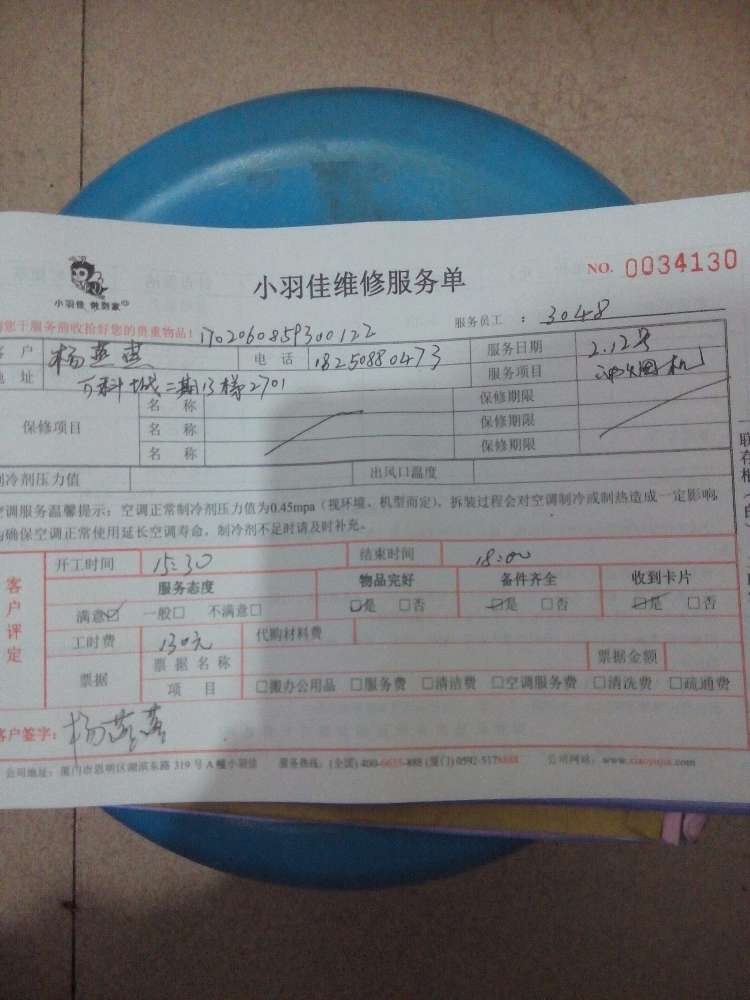 小羽佳 做到家
小羽佳维修服务单
NO. 0034130
您于服务前收捡好您的贵重物品!
1702060859300122
服务员工 : 3048
客 户 杨燕燕 电 话 18250880473 服务日期 2.12号
地 址 万科城二期13梯2701 服务项目 油烟机
保修项目
名 称 保修期限
名 称 保修期限
名 称 保修期限
制冷剂压力值 出风口温度
空调服务温馨提示:空调正常制冷剂压力值为0.45mpa(视环境、机型而定),拆装过程会对空调制冷或制热造成一定影响,
为确保空调正常使用延长空调寿命,制冷剂不足时请及时补充。
客户评定
开工时间 15:30 结束时间 18:00
服务态度 物品完好 备件齐全 收到卡片
满意☑ 一般□ 不满意□ ☑是 □否 ☑是 □否 ☑是 □否
工时费 130元 代购材料费
票据 票据名称 票据金额
项 目 □搬办公用品 □服务费 □清洁费 □空调服务费 □清洗费 □疏通费
客户签字: 杨燕燕
公司地址:厦门市思明区湖滨东路 319 号 A 幢小羽佳 服务热线:(全国) 400-6655-888 (厦门) 0592-5178888 公司网站:www.xiaoyujia.com